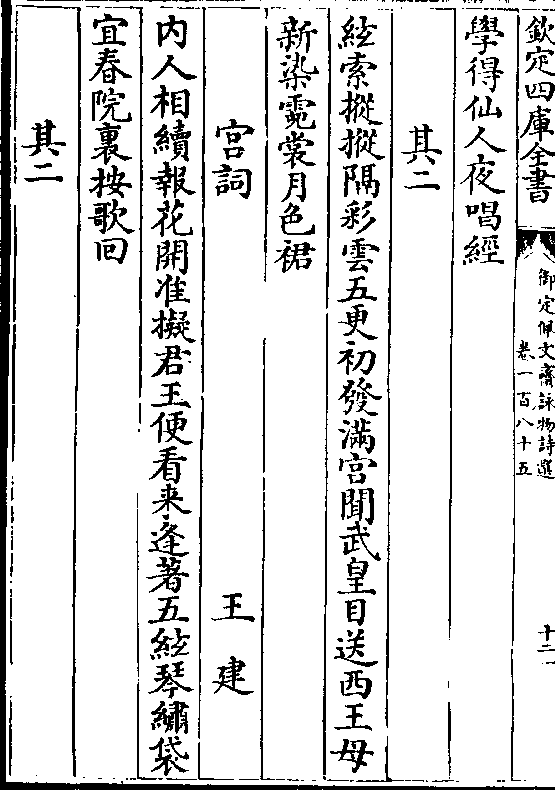 欽定四庫全書
御定佩文齋詠物詩選
卷一百八十五
十二
學得仙人夜唱經
其二
絃索摐摐隔彩雲五更初發滿宮聞武皇目送西王母
新染霓裳月色裙
宮詞
王建
内人相續報花開准擬君王便看来逢著五絃琴繡袋
宜春院裏按歌回
其二